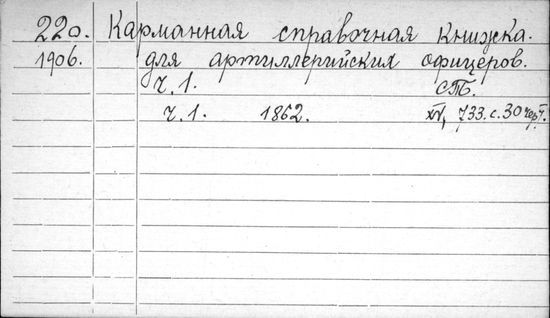 220. Карманная справочная книжка.
1906. для артиллерийских офицеров.
ч. 1. СПБ.
ч. 1. 1862. XV, 733. с. 30 черт.